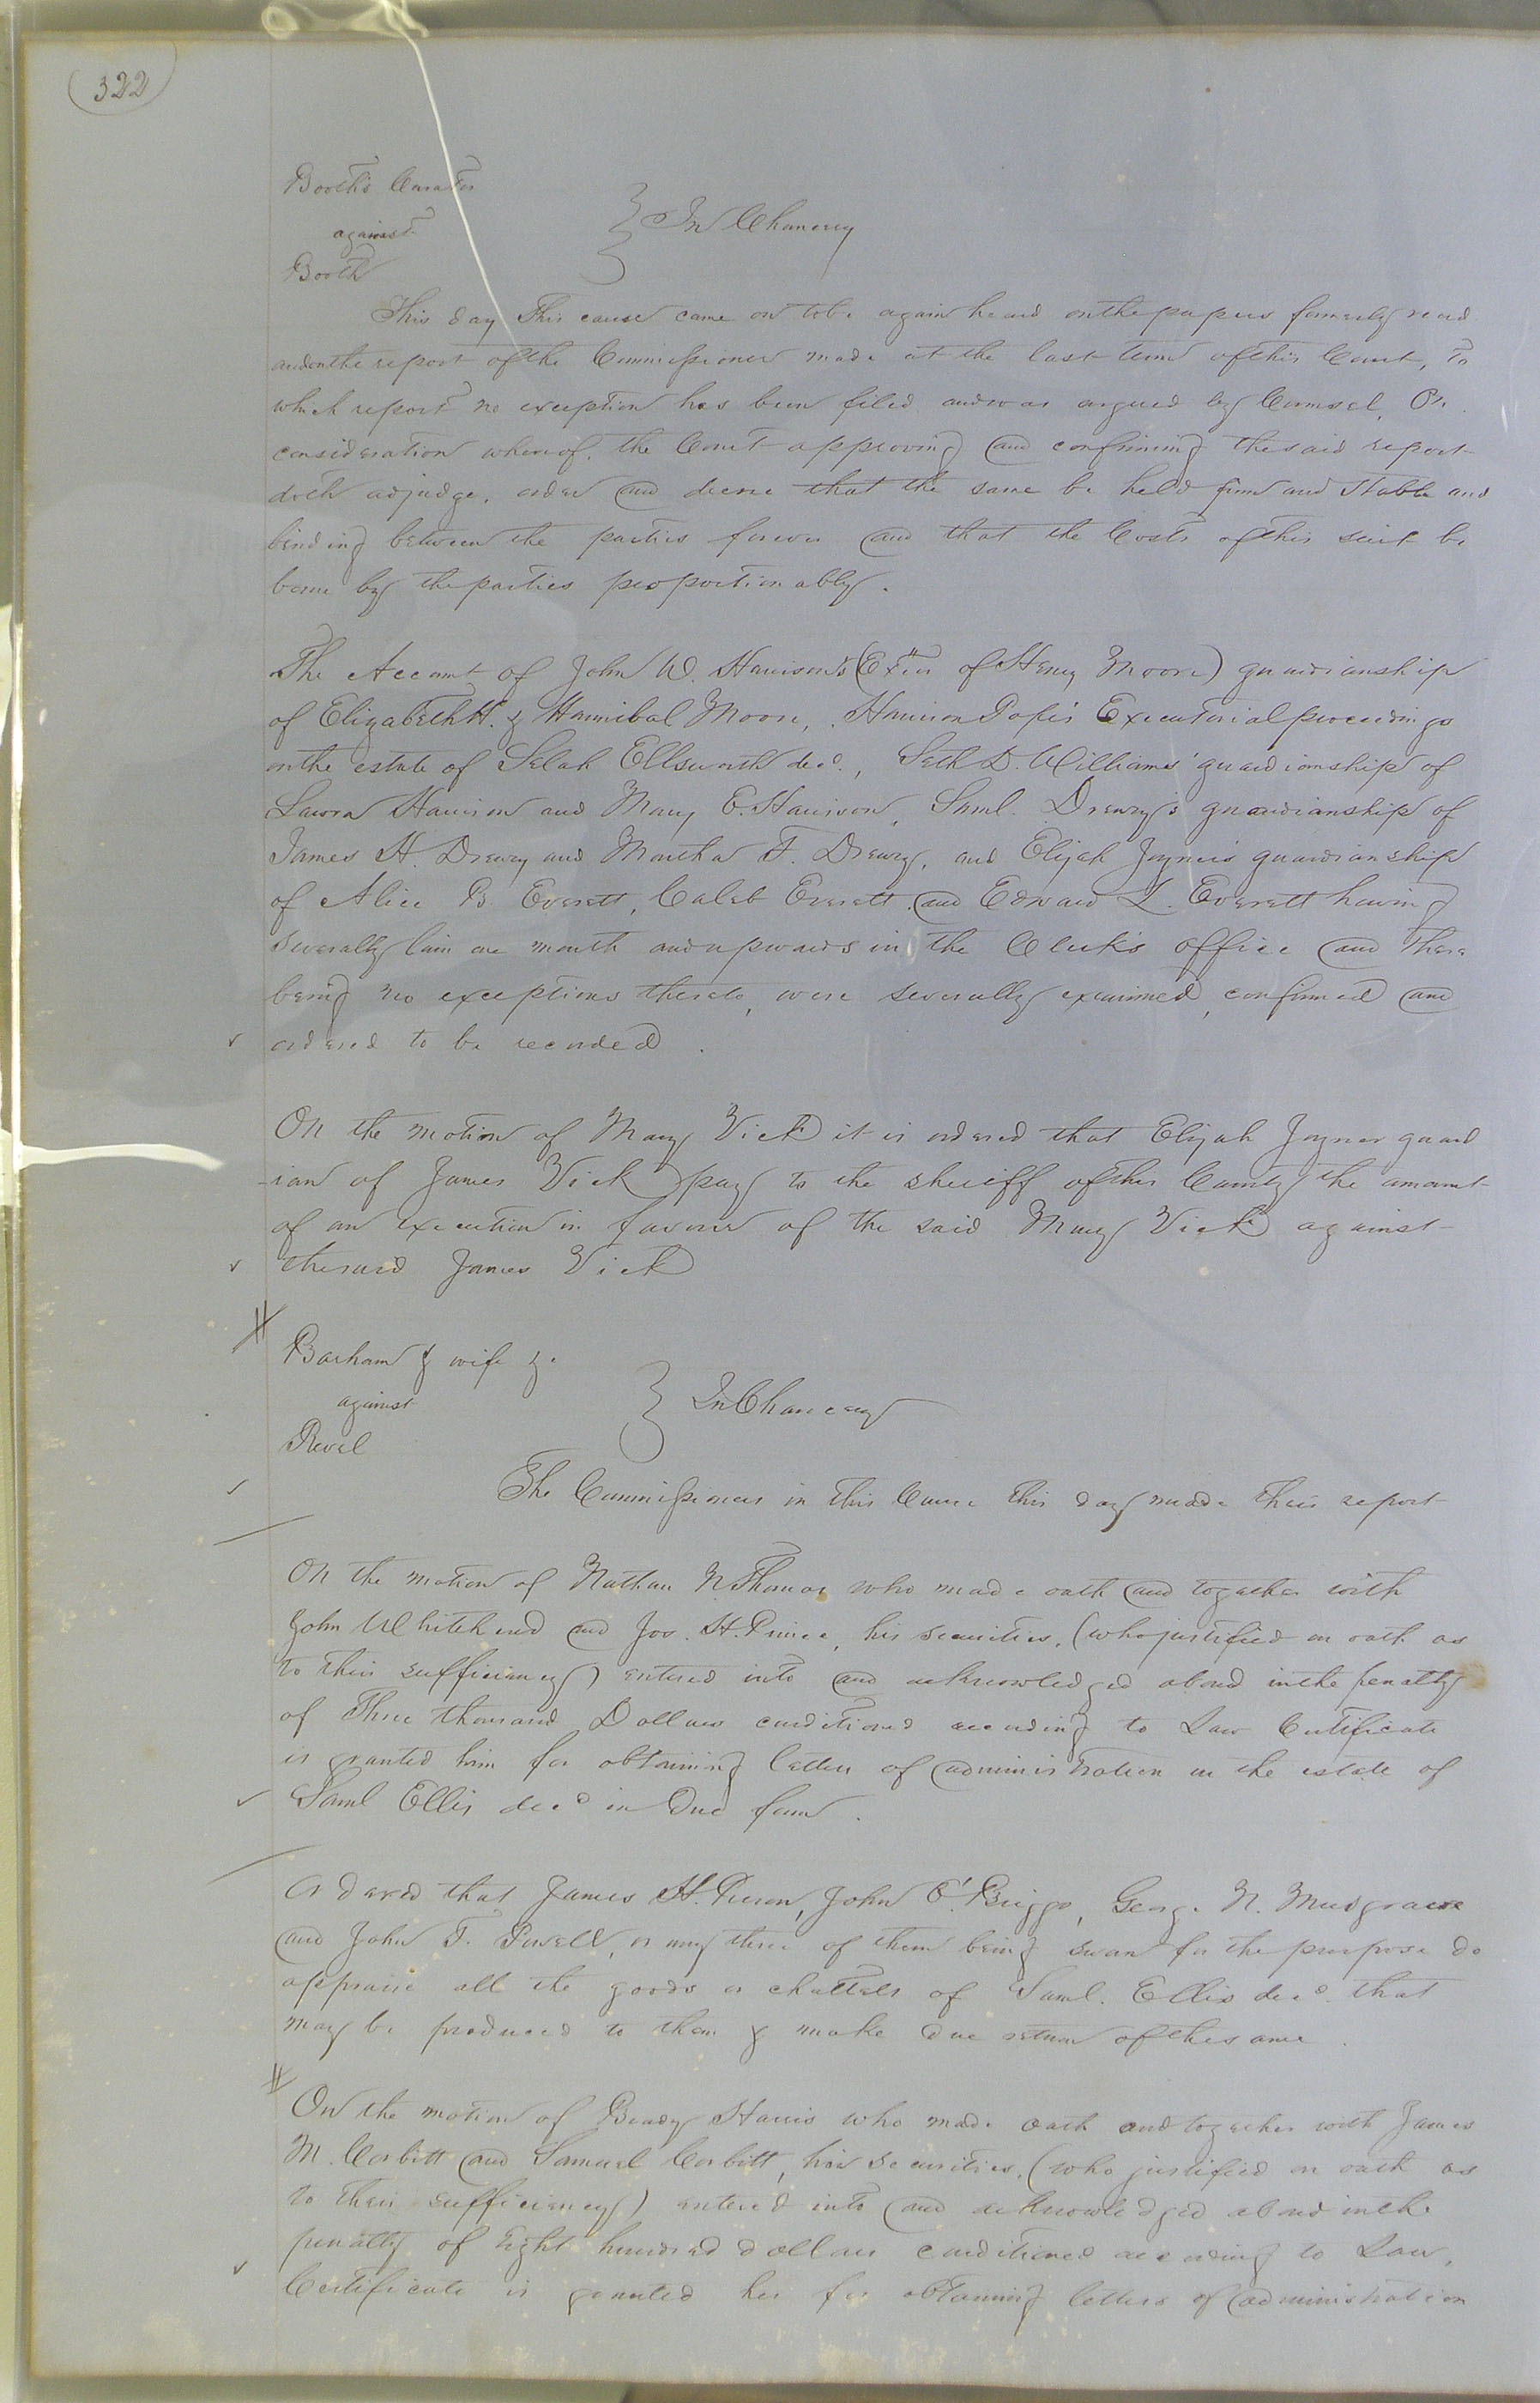 322
Booth's Curator
against
Booth
} In Chancery
This day This cause came on to be again heard on the papers formerly read
and on the report of the Commissioner made at the last term of this Court, to
which report no exception has been filed and was argued by Counsel, On
consideration whereof, the Court approving and confirming the said report
doth adjudge, order and decree that the same be held firm and stable and
binding between the parties forever and that the Costs of this suit be
borne by the parties proportionably.
The Account of John W. Harrison's (Exor of Henry Moore) guardianship
of Elizabeth H. & Hannibal Moore, Harrison Pope's Executorial proceedings
on the estate of Selah Ellsworth decd., Seth D. Williams' guardianship of
Laura Harrison and Mary E. Harrison, Saml. Drewry's guardianship of
James H. Drewry and Martha F. Drewry, and Elijah Joyner's guardianship
of Alice B Everett, Caleb Everett and Edward L. Everett having
severally lain one month and upwards in the Clerk's office and there
being no exceptions thereto, were severally examined, confirmed and
ordered to be recorded.
On the motion of Mary Vick it is ordered that Elijah Joyner guard
-ian of James Vick pay to the sheriff of this County the amount
of an execution in favour of the said Mary Vick against
the said James Vick
Barham & wife &.
against
Revel
} In Chancery
The Commissioners in this Cause this day made their report
On the motion of Nathan N. Thomas who made oath and together with
John Whitehead and Jos. H. Prince, his securities, (who justified on oath as
to their sufficiency) entered into and acknowledged a bond in the penalty
of Three thousand Dollars conditioned according to Law Certificate
is granted him for obtaining letters of administration on the estate of
Saml Ellis decd in Due form.
Ordered that James H. John C. Briggs, George N. Musgrave
and John T. Powell, or any three of them being sworn for the purpose do
appraise all the goods or chattels of Saml. Ellis decd. that
may be produced to them & make due return of the same.
On the motion of Harris who made oath and together with James
M. Corbitt and Samuel Corbitt, his securities, (who justified on oath as
to their sufficiency) entered into and acknowledged a bond in the
penalty of eight hundred dollars conditioned according to Law,
Certificate is granted her for obtaining letters of administration